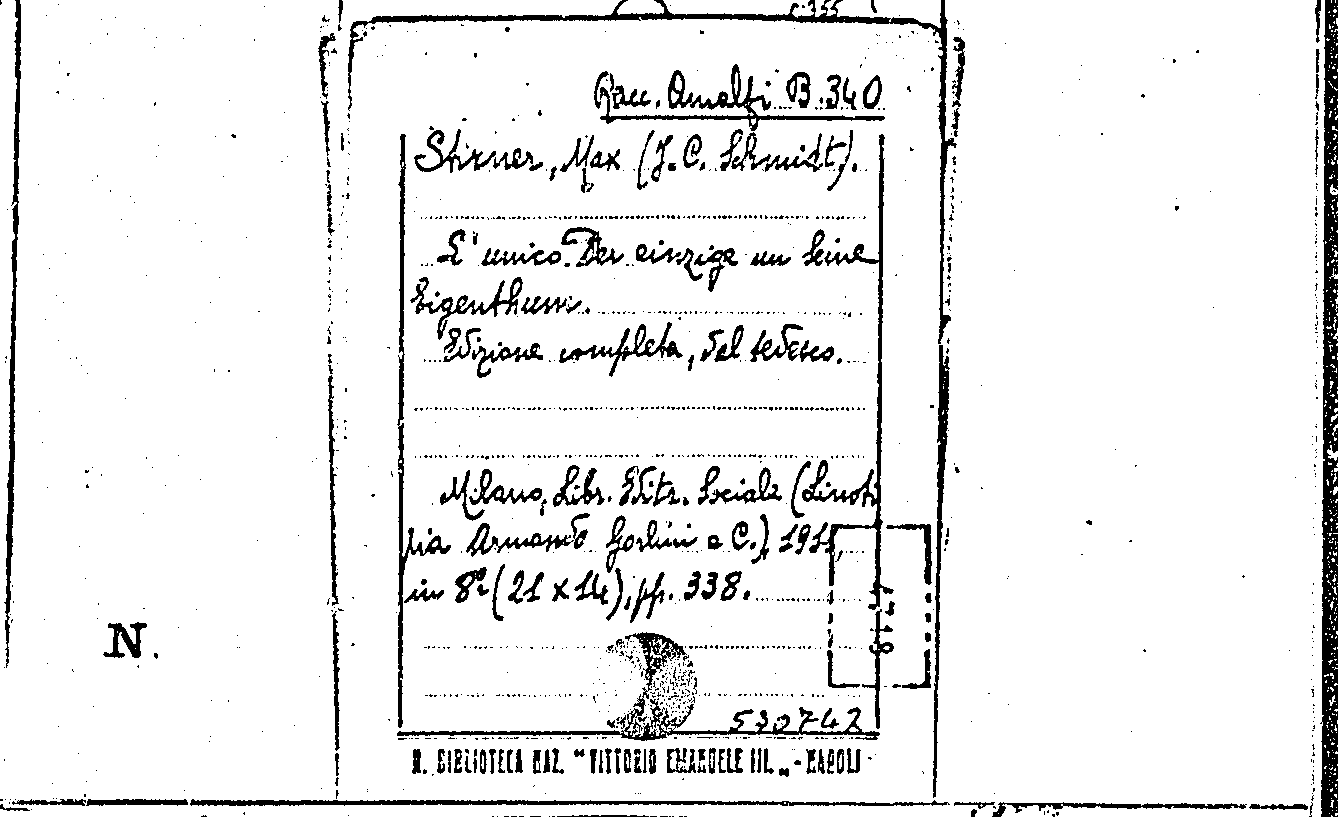 c.355
Racc. Amalfi B.340
Stirner, Max (J.C. Schmidt).
L'unico. Der einzige un seine
Eigenthum.
Edizione completa, dal tedesco.
Milano, Libr. Editr. Sociale (Linoti
pia Armando Gorlini e C.), 1911,
in 8º (21 x 14), pp. 338.
N.
530742
R. BIBLIOTECA NAZ. "VITTORIO EMANUELE III„ - NAPOLI